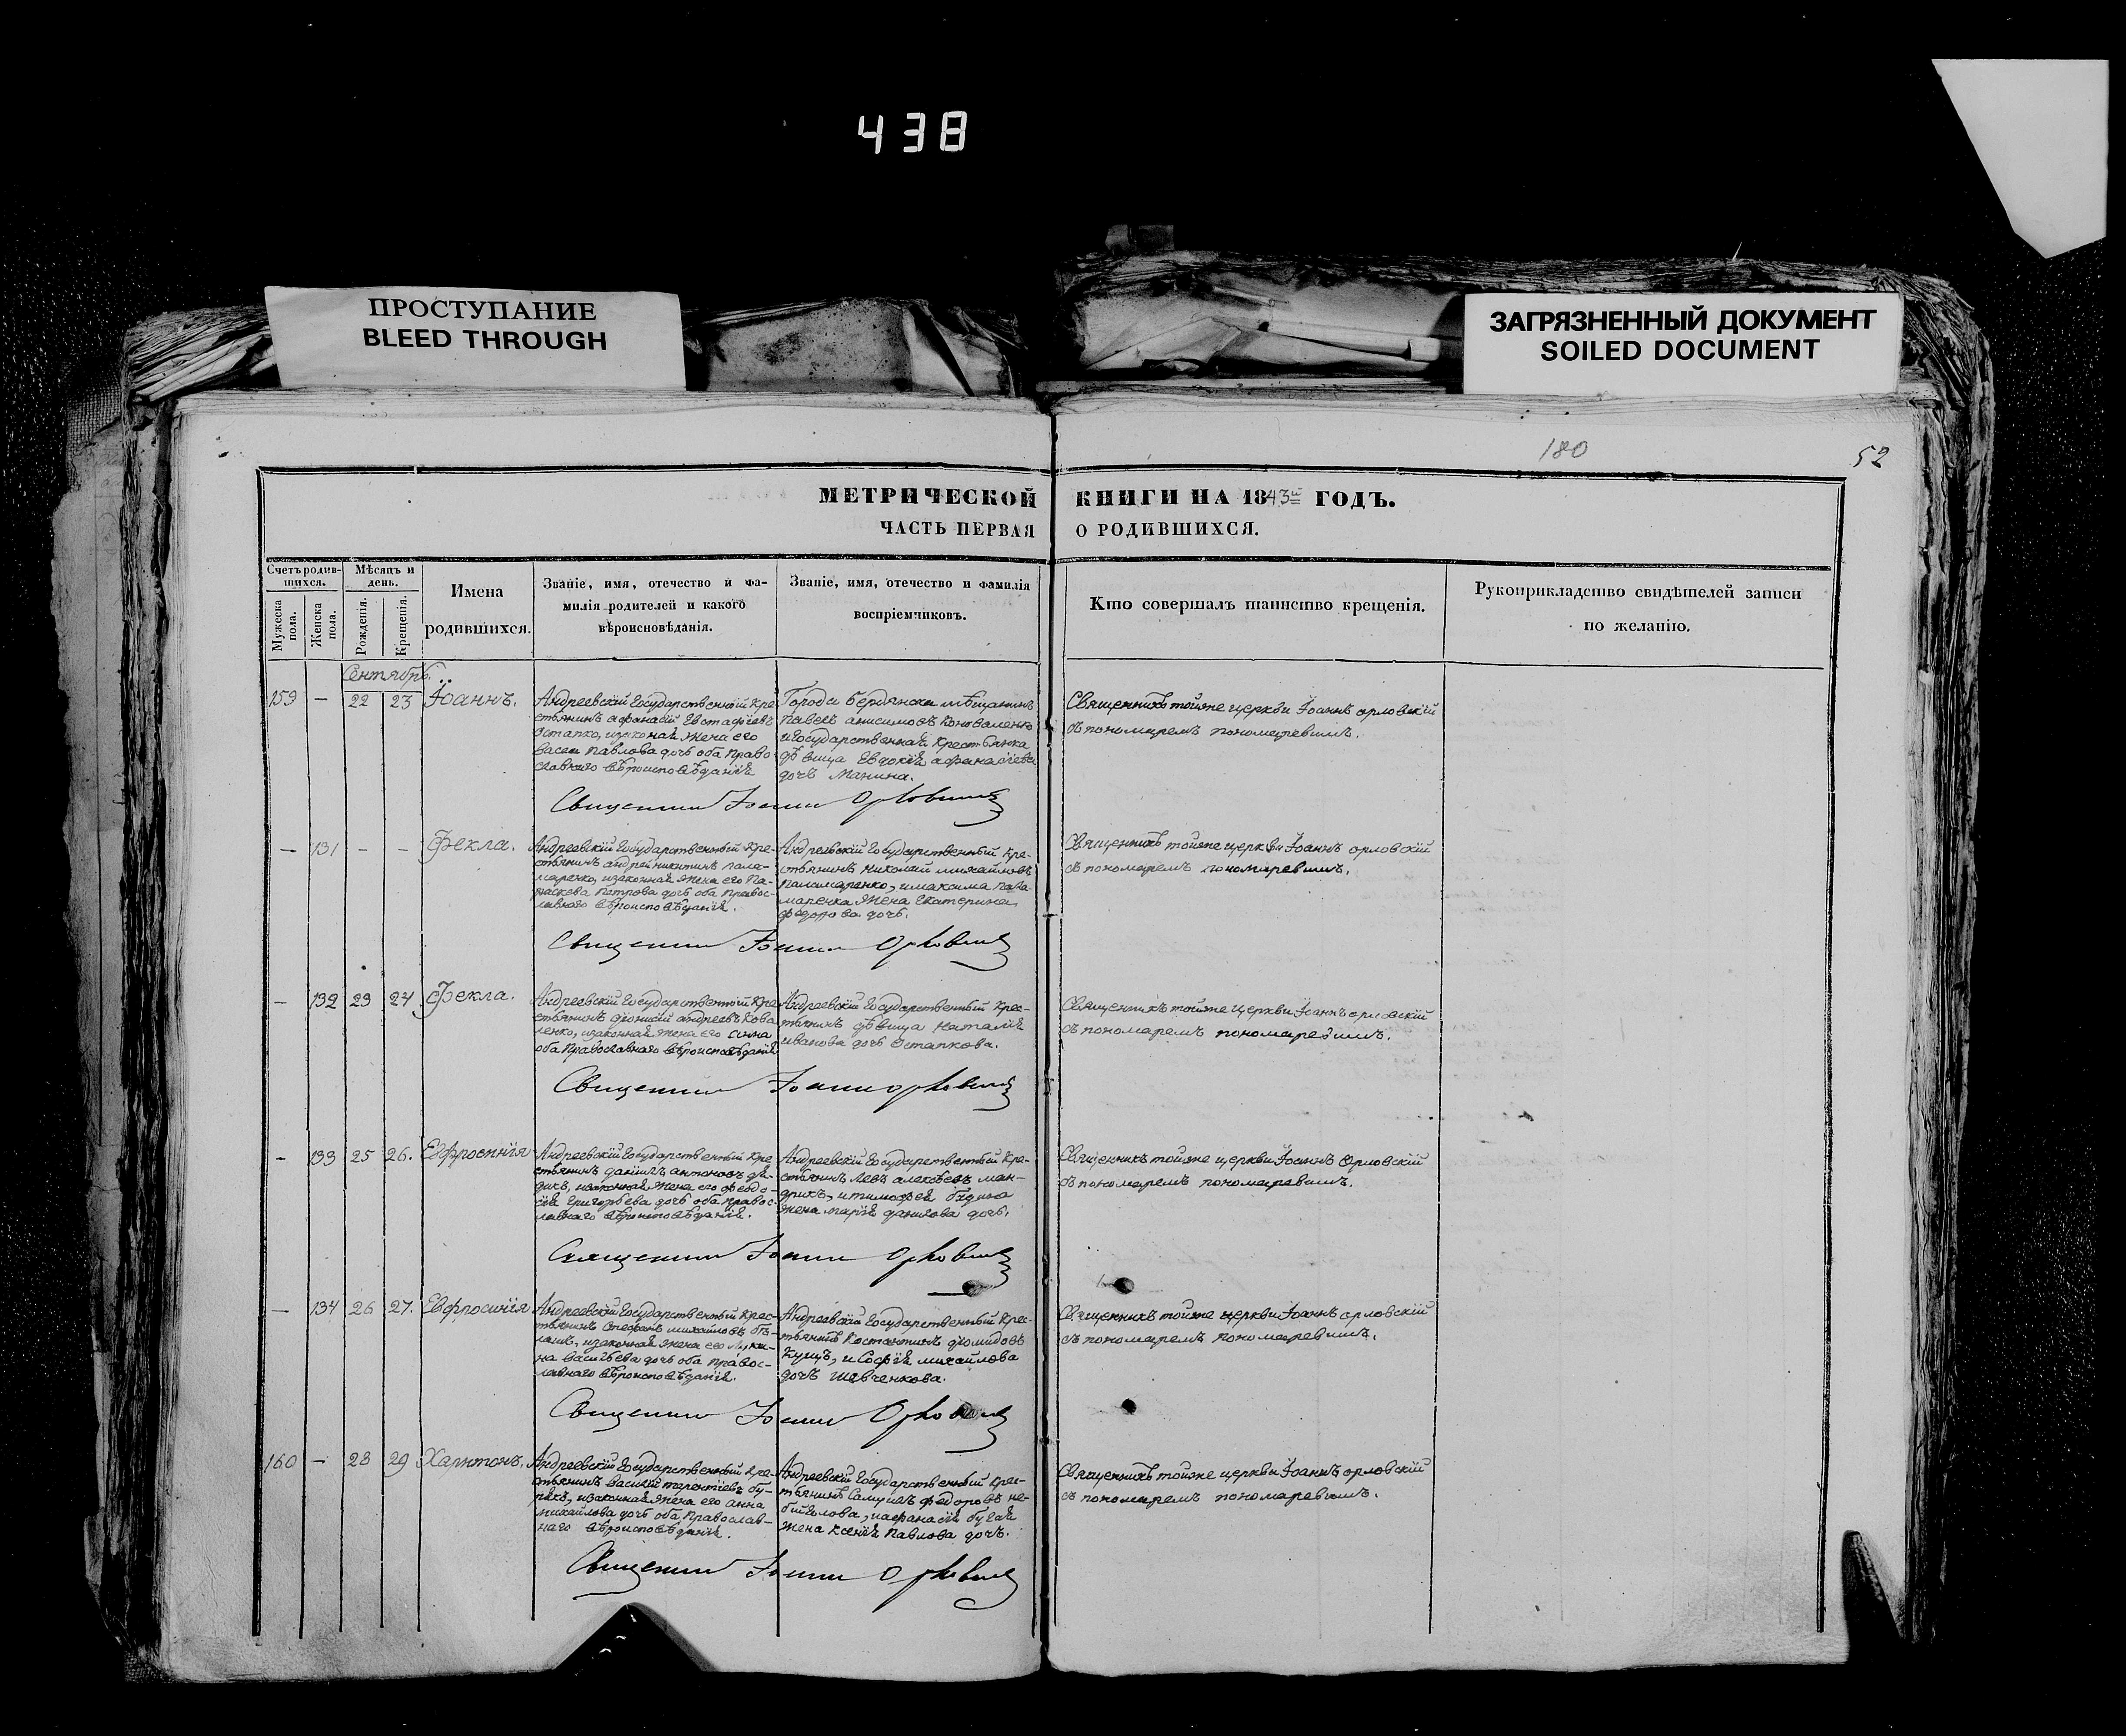 438
ПРОСТУПАНИЕ
BLEED THROUGH
ЗАГРЯЗНЕННЫЙ ДОКУМЕНТ
SOILED DOCUMENT
180
52
МЕТРИЧЕСКОЙ КНИГИ НА 1843й ГОДЪ.
ЧАСТЬ ПЕРВАЯ О РОДИВШИХСЯ.
Счетъ родив-
шихся.
Мужеска пола.
Женска пола.
Мѣсяцъ и
день.
Рожденія.
Крещенія.
Имена
родившихся.
Званіе, имя, отечество и фа-
милія родителей и какого
вѣроисповѣданія.
Званіе, имя, отечество и фамилія
воспріемчиковъ.
Кто совершалъ таинство крещенія.
Рукоприкладство свидѣтелей записи
по желанію.
Сентябрь
159 — 22 23 Іоаннъ.
Андреевскій Государственный Кре
стьянинъ афанасій Евстафіевъ
Остапко, изаконная жена его
Васса Павлова дочь оба Право
славнаго вѣроисповѣданія
Города Бердянска мѣщанинъ
Павелъ анисимовъ Коноваленко
и Государственная крестьянка
дѣвица Евдокія афанасіева
дочь Манина.
Священникъ тойже церкви Іоаннъ орловскій
съ пономаремъ пономаревымъ.
Священникъ Іоаннъ Орловскій
— 131 — — Фекла.
Андреевскій Государственный Кре-
стьянинъ андрей никитинъ пала-
маренко, изаконная жена его Па-
раскева Петрова дочь оба правос-
лавнаго вѣроисповѣданія.
Андреевскій Государственный Кре-
стьянинъ Николай михайловъ
Паламаренко, имаксима Пала
маренка жена Екатерина
федорова дочь.
Священникъ тойже церкви Іоаннъ орловскій
съ пономаремъ пономаревымъ.
Священникъ Іоаннъ Орловскій
— 132 23 24 Фекла.
Андреевскій Государственный Кре
стьянинъ діонисій андреевъ Кова
ленко, изаконная жена его анна
оба Православнаго вѣроисповѣданія
Андреевскій Государственный Крес-
тьянинъ дѣвица Наталія
иванова дочь Остапкова.
Священникъ тойже церкви Іоаннъ орловскій
съ пономаремъ пономаревымъ.
Священникъ Іоаннъ орловскій
— 133 25 26. Евфросинія
Андреевскій Государственный Кре
стьянинъ даніилъ антоновъ дя-
дикъ, изаконная жена его Феодо-
сія Григорьева дочь оба правос-
лавнаго вѣроисповѣданія.
Андреевскій Государственный Кре-
стьянинъ Левъ алексѣевъ ман-
дрикъ, итимофея
жена марія данилова дочь.
Священникъ тойже церкви Іоаннъ Орловскій
съ пономаремъ пономаревымъ.
Священникъ Іоаннъ Орловскій
— 134 26 27. Евфросинія
Андреевскій Государственный Крес-
тьянинъ Стефанъ михайловъ бѣ-
лашъ, изаконная жена его Мари-
на Васильева дочь оба правос-
лавнаго вѣроисповѣданія.
Андреевскій Государственный Крес-
тьянинъ Костантинъ діомидовъ
Куцъ, и Софія михайлова
дочь Шевченкова.
Священникъ тойже церкви Іоаннъ орловскій
съ пономаремъ пономаревымъ.
Священникъ Іоаннъ Орловскій
160 — 28 29 Харитонъ.
Андреевскій Государственный Кре-
стьянинъ Василій терентіевъ бу-
рякъ, изаконная жена его анна
михайлова дочь оба Православ-
наго вѣроисповѣданія.
Андреевскій Государственный Крес-
тьянинъ Самуилъ федоровъ не-
бійголова, иафанасія бугая
жена Ксенія Павлова дочь.
Священникъ тойже церкви Іоаннъ орловскій
съ пономаремъ пономаревымъ.
Священникъ Іоаннъ Орловскій